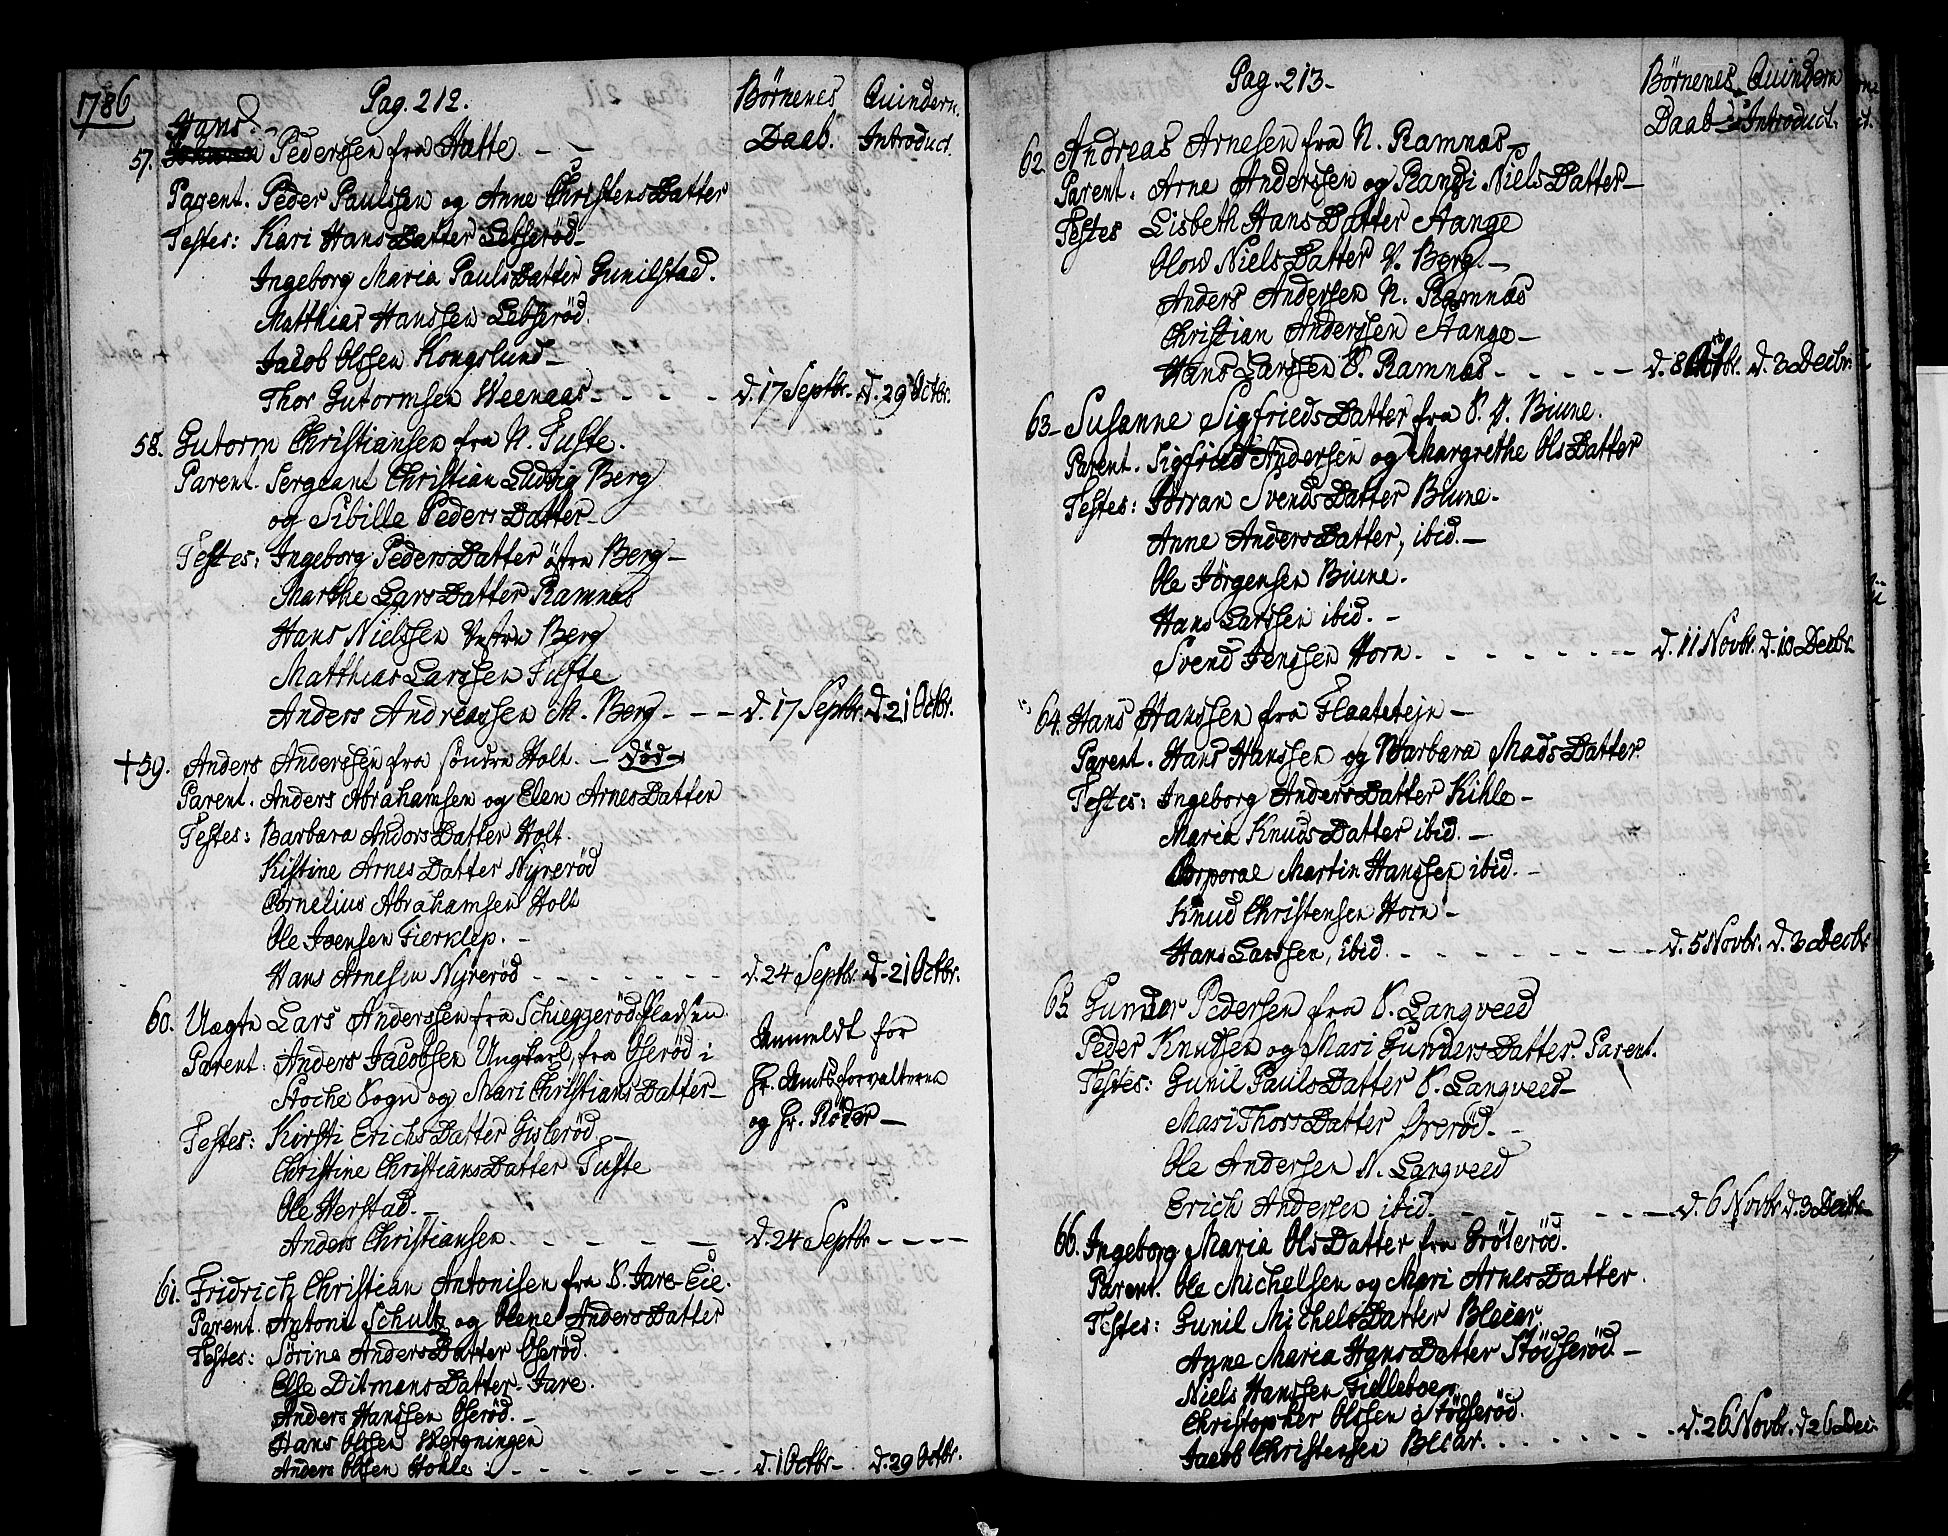 1786
Pag. 212.
Börnenes Daab.
Quindern. Introduct.
Hans
57. Pederssen fra Aatte. - -
Parent. Peder Paulssen og Anne ChristensDatter
Testes: Kari HansDatter Lebseröd -
Ingeborg Maria PaulsDatter Gunilstad.
Matthias Hanssen Lebseröd.
Jacob Olssen Kongslund -
Thor Gutormsen Weenaas - - - - d. 17 Septbr. d. 29 Octbr.
58. Gutorm Christiansen fra N. Tufte.
Parent. Sergeant Christian Ludvig Berg
og Sibille PedersDatter -
Testes: Ingeborg PedersDatter östre Berg -
Marthe LarsDatter Ramnas
Hans Nielssen Vestre Berg
Matthias Larssen Tufte
Anders Andreassen M. Berg - - - d. 17 Septbr. d. 21 Octbr.
+ 59. Anders Anderssen fra söndre Holt. - död -
Parent. Anders Abrahamsen og Elen ArnesDatter
Testes: Barbara AndersDatter Holt.
Kistine ArnesDatter Nyreröd
Cornelius Abrahamsen Holt
Ole Joensen Fierklep. -
Hans Arnesen Nyreröd - - - - - - - d. 24 Septbr. d. 21 Octbr.
60. Uægte Lars Anderssen fra Schieggeröd Pladsen
Parent: Anders Jacobsen Ungkarl fra Oseröd i
Stoche Sogn og Mari ChristiansDatter -
Anmeldt for
Hr. Amtsforvalteren
og Hr. Röder -
Testes: Kirsti ErichsDatter Gisleröd -
Christine ChristiansDatter Tufte
Ole Herstad. -
Anders Christiansen. - - - - - d. 24 Septbr - - - -
61. Fridrich Christian Antonisen fra S. Jare-Eie.
Parent. Antoni Schultz og Olene AndersDatter
Testes: Sörine AndersDatter Oseröd.
Else DitmansDatter Jare.
Anders Hanssen Oseröd. -
Hans Olssen Wergningen
Anders Olssen Hohle - - - - - - - d. 1 Octbr - d. 29 Octbr.
Pag. 213 -
Börnenes Daab -
Quindern Introduct.
62. Andreas Arnesen fra N. Ramnas -
Parent. Arne Anderssen og Randi NielsDatter -
Testes Lisbeth HansDatter Stange
Olow NielsDatter V. Berg. -
Anders Andersen N. Ramnas
Christian Anderssen Stange -
Hans Larssen S. Ramnas - - - - - d. 8 Octbr. d. 3 Decbr.
63 - Susanne SigfriedsDatter fra S. V. Biune.
Parent. Sigfried Andersen og Margrethe OlsDatter
Testes: Jörran SvendsDatter Biune.
Anne AndersDatter, ibid. -
Ole Jörgensen Biune.
Hans Larssen ibid. -
Svend Jenssen Horn - - - - - - - - d. 11 Novbr. d. 10 Decbr.
64. Hans Hanssen fra Flaatetejn -
Parent. Hans Hanssen og Barbara MadsDatter
Testes: Ingeborg AndersDatter Kihle -
Maria KnudsDatter ibid. -
Corporal Martin Hanssen ibid. -
Knud Christensen Horn -
Hans Larssen, ibid. - - - - - - - - - d. 5 Novbr. d. 3 Decbr
65 Gunder Pedersen fra S. Langveed
Peder Knudsen og Mari GundersDatter. Parent.
Testes: Gunil PaulsDatter S. Langveed -
Mari ThorsDatter Öreröd. -
Ole Andersen N. Langveed
Erich Andersen ibid. - - - - - - d. 6 Novbr. d. 3 Decbr -
66. Ingeborg Maria OlsDatter fra Grötteröd.
Parent. Ole Michelsen og Mari ArnesDatter.
Testes: Gunil MichelsDatter Blecar.
Anne Maria HansDatter Stödseröd -
Niels Hanssen Fielleboe
Christopher Olssen Stödseröd.
Jacob Christensen Blecar. - - - - - - d. 26 Novbr. d 26 Dec.